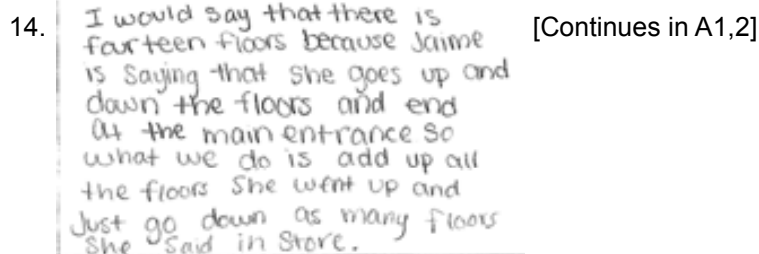 14. I would say that there is [Continues in A1,2]
fourteen floors because Jaime
is Saying that she goes up and
down the floors and end
at the main entrance so
what we do is add up all
the floors She went up and
Just go down as many floors
She Said in Store.